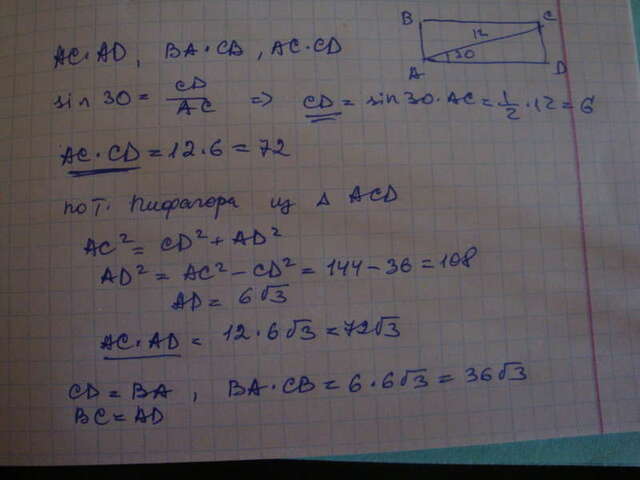 B C
12
30
A D
AC·AD, BA·CB, AC·CD
sin 30 = CD/AC => CD = sin 30·AC = 1/2·12 = 6
AC·CD = 12·6 = 72
по т. Пифагора из Δ ACD
AC² = CD² + AD²
AD² = AC² − CD² = 144 − 36 = 108
AD = 6√3
AC·AD = 12·6√3 = 72√3
CD = BA, BA·CB = 6·6√3 = 36√3
BC = AD